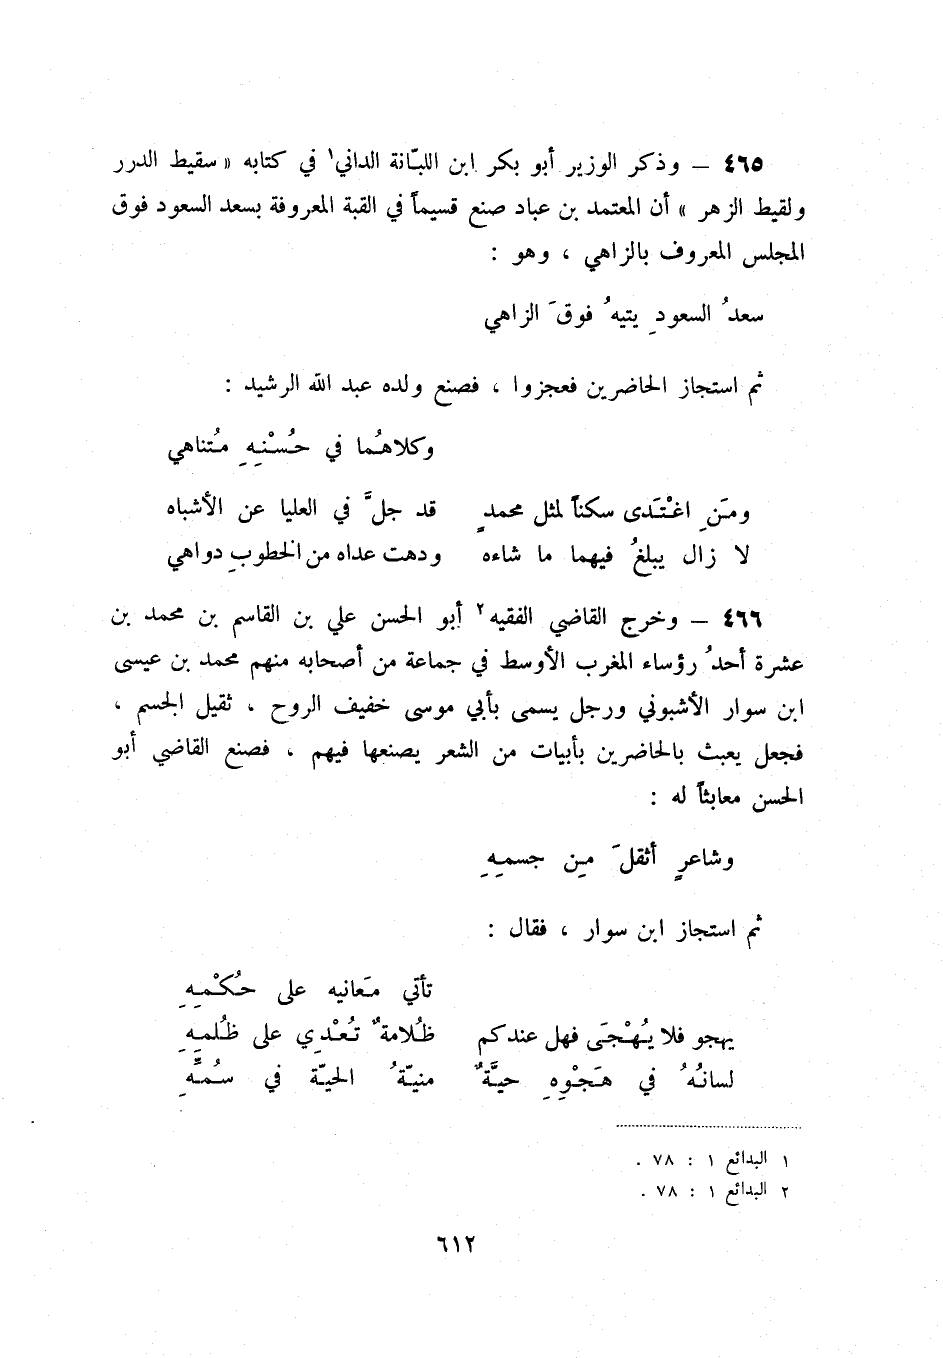 ٤٦٥ – وذكر الوزير أبو بكر ابن اللبّانة الداني١ في كتابه « سقيط الدرر
ولقيط الزهر » أن المعتمد بن عباد صنع قسيماً في القبة المعروفة بسعد السعود فوق
المجلس المعروف بالزاهي ، وهو :
سعدُ السعودِ يتيهُ فوقَ الزاهي
ثم استجاز الحاضرين فعجزوا ، فصنع ولده عبد الله الرشيد :
وكلاهُما في حُسْنِهِ مُتناهي
ومَنِ اغْتَدى سكناً لمثل محمدٍ قد جلَّ في العليا عن الأشباه
لا زال يبلغُ فيهما ما شاءه ودهت عداه من الخطوبِ دواهي
٤٦٦ – وخرج القاضي الفقيه٢ أبو الحسن علي بن القاسم بن محمد بن
عشرة أحدُ رؤساء المغرب الأوسط في جماعة من أصحابه منهم محمد بن عيسى
ابن سوار الأشبوني ورجل يسمى بأبي موسى خفيف الروح ، ثقيل الجسم ،
فجعل يعبث بالحاضرين بأبيات من الشعر يصنعها فيهم ، فصنع القاضي أبو
الحسن معابثاً له :
وشاعرٍ أثقلَ مِن جسمِهِ
ثم استجاز ابن سوار ، فقال :
تأتي مَعانيه على حُكْمِهِ
يهجو فلا يُهْجَى فهل عندكم ظُلامةٌ تُعْدِي على ظُلمِهِ
لسانُهُ في هَجْوِهِ حيَّةٌ منيّةُ الحيّة في سُمِّهِ
١ البدائع ١ : ٧٨ .
٢ البدائع ١ : ٧٨ .
٦١٢